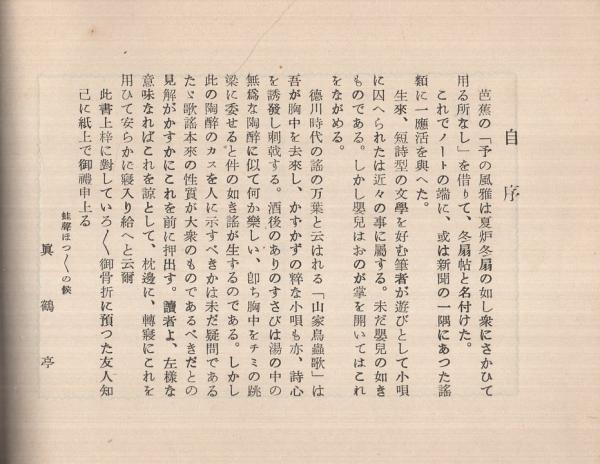 自序
芭蕉の「予の風雅は夏炉冬扇の如し衆にさかひて
用る所なし」を借りて、冬扇帖と名付けた。
これでノートの端に、或は新聞の一隅にあつた謠
類に一應活を與へた。
生來、短詩型の文學を好む筆者が遊びとして小唄
に囚へられたは近々の事に屬する。未だ嬰兒の如き
ものである。しかし嬰兒はおのが掌を開いてはこれ
をながめる。
德川時代の謠の万葉と云はれる「山家鳥蟲歌」は
吾が胸中を去來し、かすかずの粹な小唄も亦、詩心
を誘發し刺戟する。酒後のありのすさびは湯の中の
無爲な陶醉に似て何か樂しい、卽ち胸中をチミの跳
梁に委せると件の如き謠が生するのである。しかし
此の陶醉のカスを人に示すべきかは未だ疑問である
たゞ歌謠本來の性質が大衆のものであるべきだとの
見解がかすかにこれを前に押出す。讀者よ、左樣な
意味なればこれを諒として、枕邊に、轉寢にこれを
用ひて安らかに寢入り給へと云爾
此書上梓に對していろ〱御骨折に預つた友人知
己に紙上で御禮申上る
蛙聲ほつ〱の候
眞鶴亭